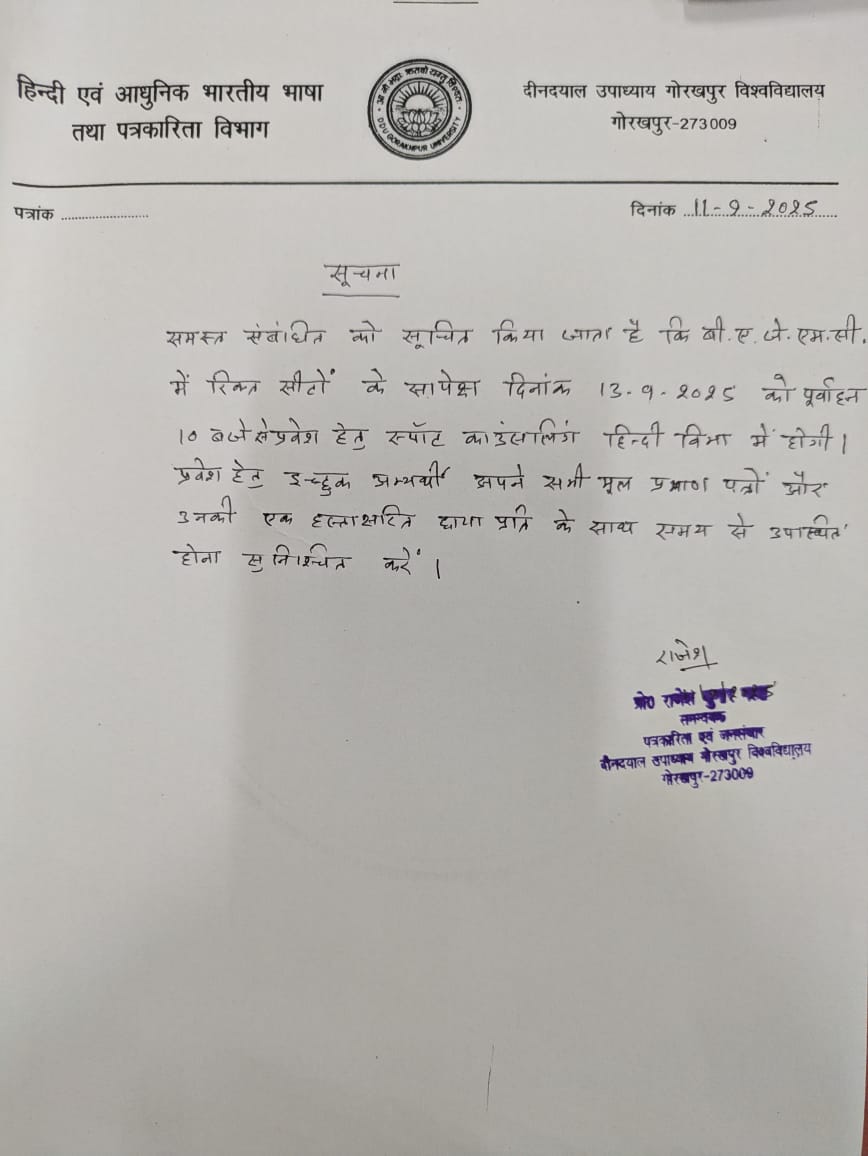 हिन्दी एवं आधुनिक भारतीय भाषा
तथा पत्रकारिता विभाग
DDU GORAKHPUR UNIVERSITY
दीनदयाल उपाध्याय गोरखपुर विश्वविद्यालय
गोरखपुर-273009
पत्रांक ........................
दिनांक ...11-9-2025.....
सूचना
समस्त संबंधित को सूचित किया जाता है कि बी.ए.जे.एम.सी.
में रिक्त सीटों के सापेक्ष दिनांक 13-9-2025 को पूर्वाहन
10 बजे से प्रवेश हेतु स्पॉट काउंसलिंग हिन्दी विभा में होगी।
प्रवेश हेतु इच्छुक अभ्यर्थी अपने सभी मूल प्रमाण पत्रों और
उनकी एक हस्ताक्षरित छाया प्रति के साथ समय से उपस्थित
होना सुनिश्चित करें।
राजेश
प्रो० राजेश कुमार
पत्रकारिता एवं जनसंचार
दीनदयाल उपाध्याय गोरखपुर विश्वविद्यालय
गोरखपुर-273009